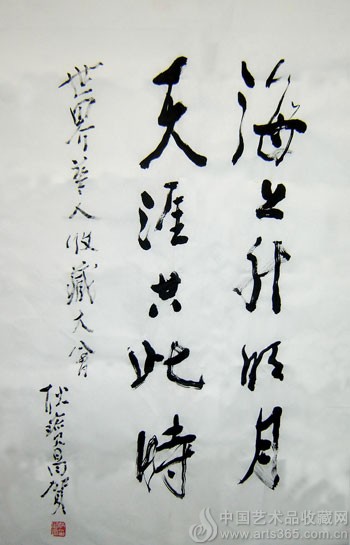 海上升明月
天涯共此時
世界華人收藏大會
耿寶昌賀
中国艺术品收藏网
www.arts365.com.cn